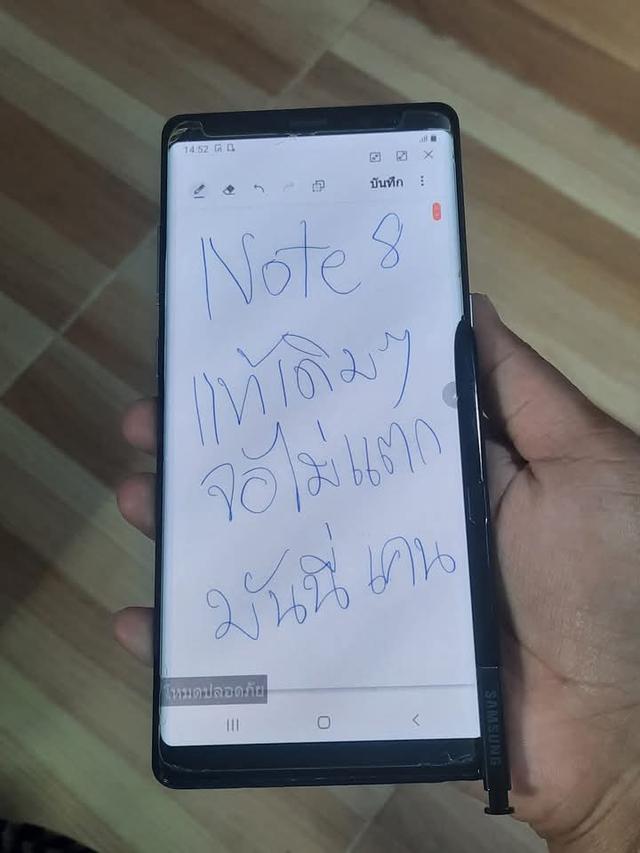 14:52
บันทึก
Note 8
แท้เดิมๆ
จอไม่แตก
มันนี่ เคน
โหมดปลอดภัย
SAMSUNG